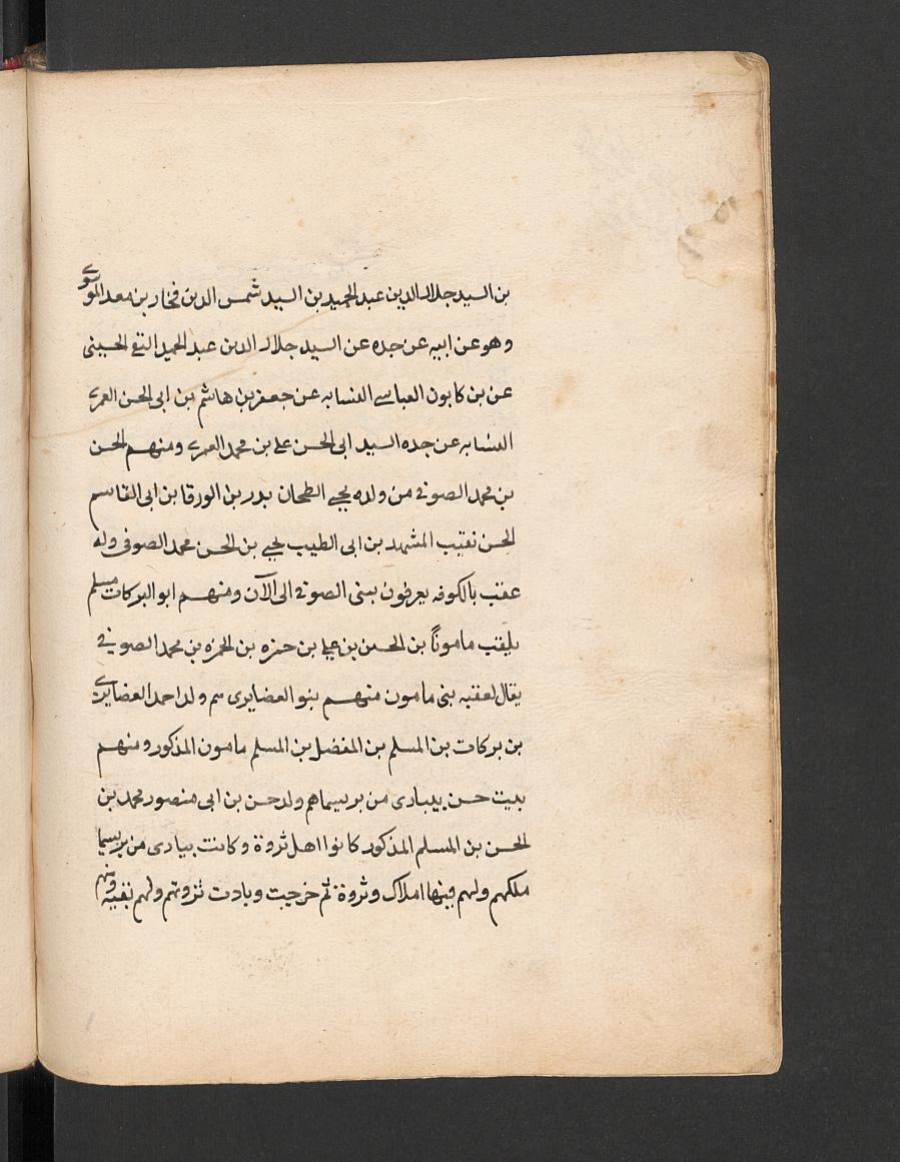 بن السيد جلال الدين عبد الحميد بن السيد شمس الدين فخار بن معد الموسوي
وهو عن ابيه عن جده عن السيد جلال الدين عبد الحميد التقي الحسيني
عن بن كابون العباسي النسابه عن جعفر بن هاشم بن ابى الحسن العمرے
النسابه عن جده السيد ابى الحسن علے بن محمد العمرے ومنهم الحسن
بن محمد الصوفے من ولده يحيے الطحان بدر بن الورقا بن ابى القاسم
الحسن نقيب المشهد بن ابى الطيب يحيے بن الحسن محمد الصوفى وله
عقب بالكوفه يعرفون ببنى الصوفے الى الآن ومنهم ابو البركات مسلم
يلقب مامونًا بن الحسن بن علے بن حمزه بن الحمزه بن محمد الصوفے
يقال لعقبه بنى مامون منهم بنو الغضايرى هم ولد احمد الغضايرے
بن بركات بن المسلم بن المفضل بن المسلم مامون المذكور ومنهم
بيت حسن ببيادى من بريسماهم ولد حسن بن ابى منصور محمد بن
الحسن بن المسلم المذكور كانوا اهل ثروة وكانت بيادى من بريسما
ملكهم ولهم فيها املاك وثروة ثم خرجت وبادت ثروتهم ولهم بقيه ومنهم